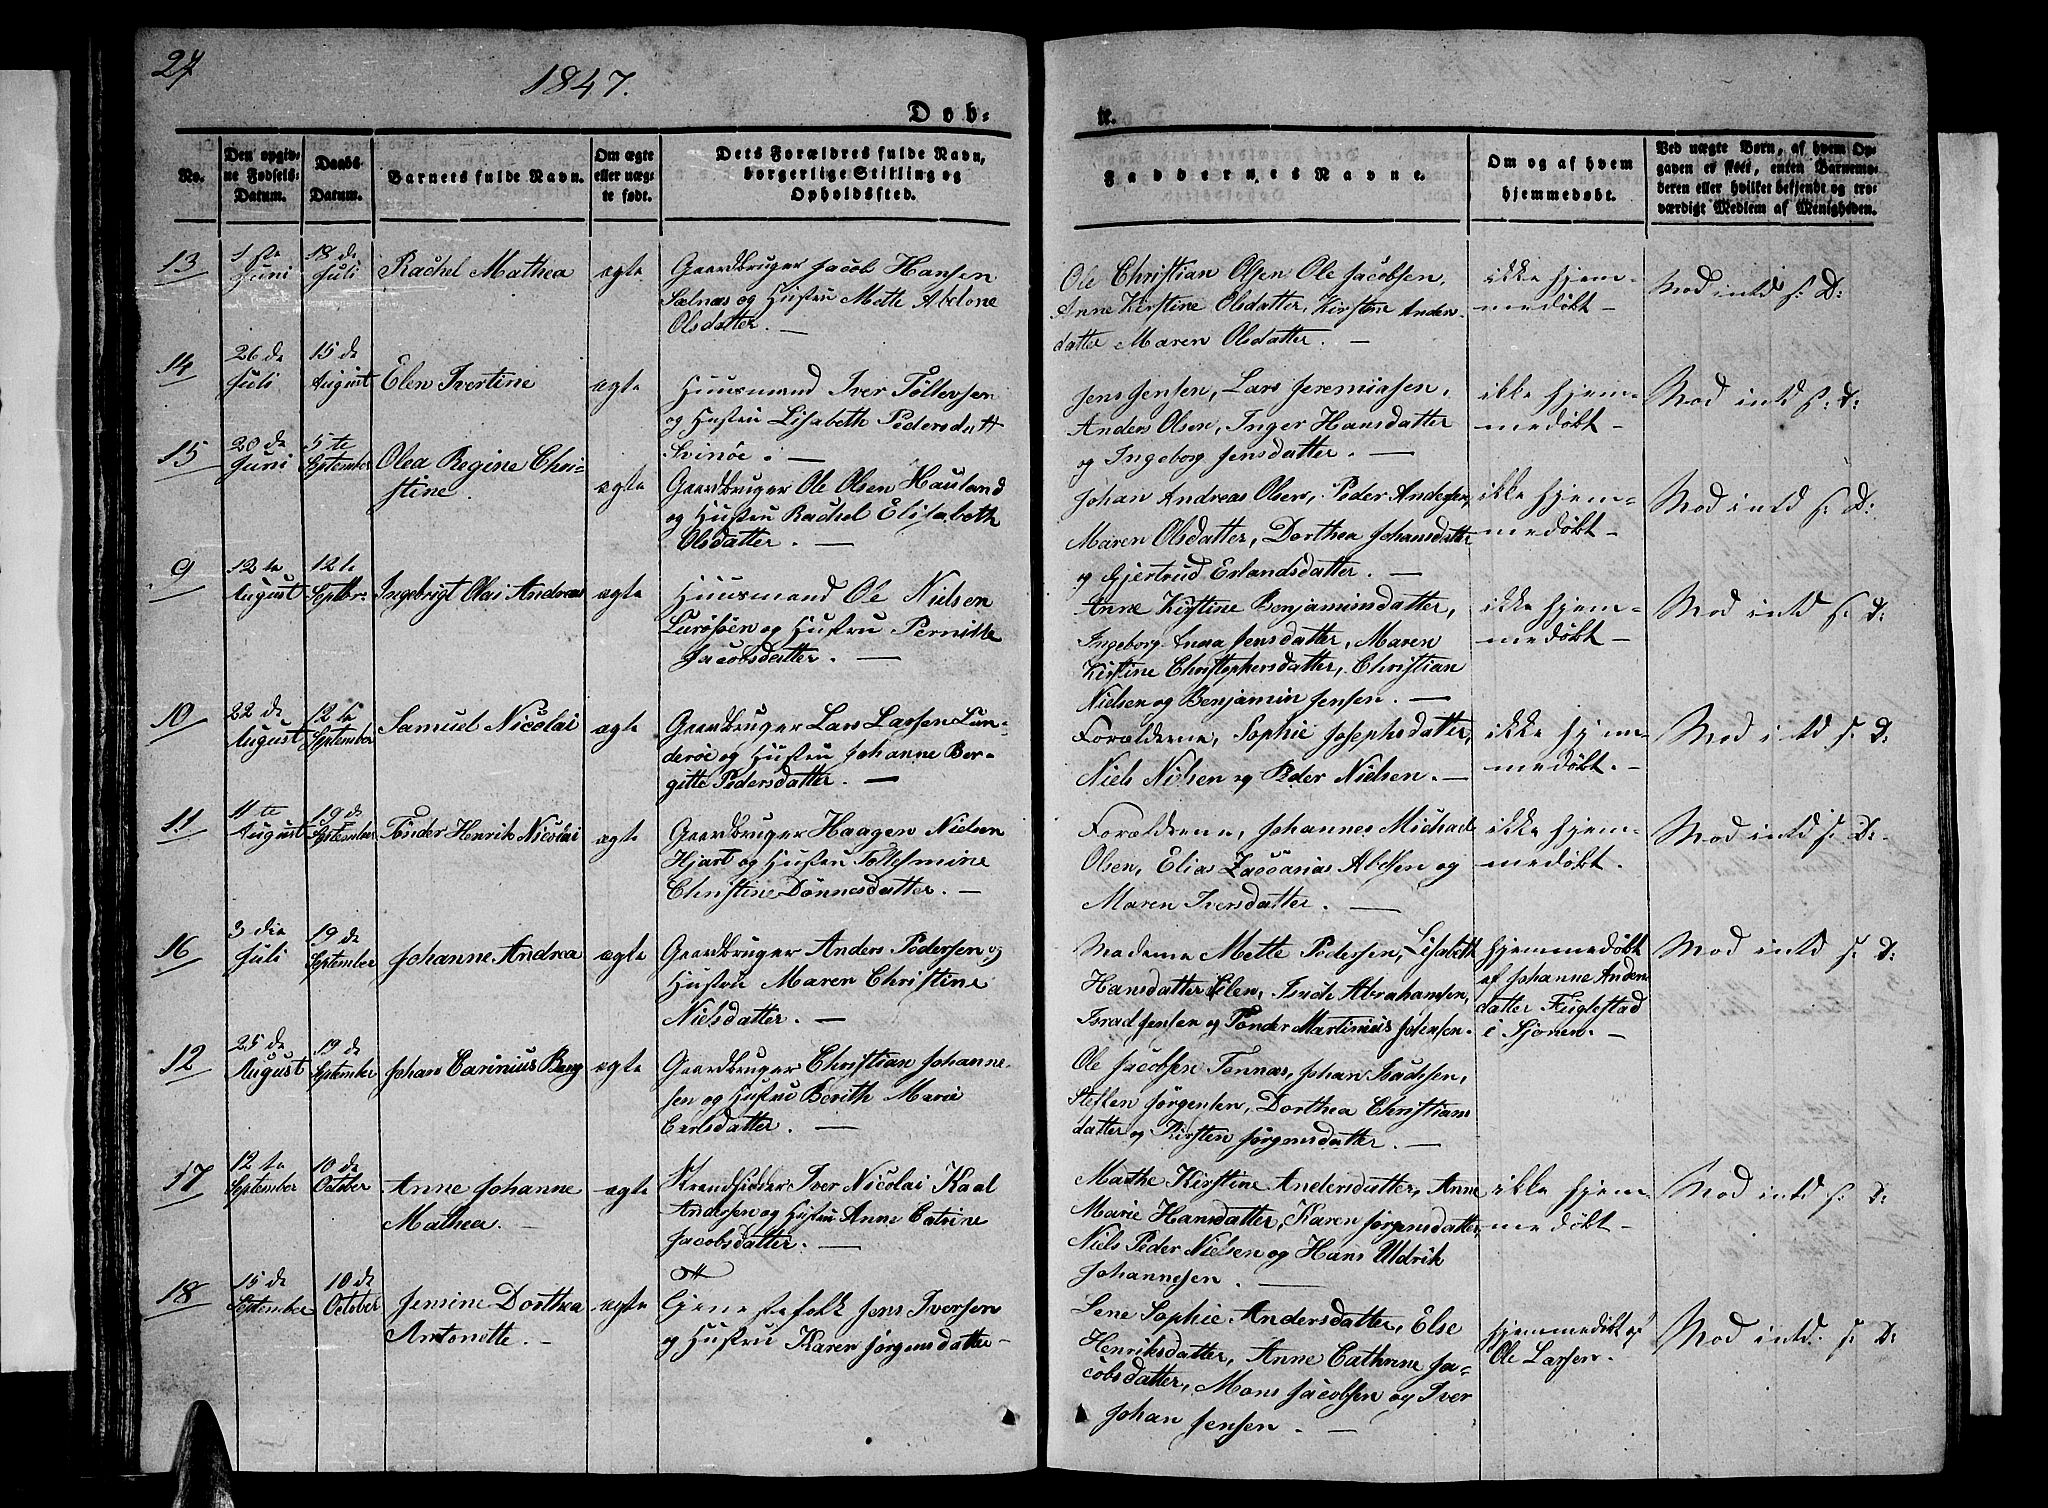 27
1847.
Døb-
te.
No.
Den opgiv-
ne Fødsels-
Datum.
Daabs-
Datum.
Barnets fulde Navn.
Om ægte
eller uæg-
te født.
Dets Forældres fulde Navn,
borgerlige Stilling og
Opholdssted.
Faddernes Navne.
Om og af hvem
hjemmedøbt.
Ved uægte Børn, af hvem Op-
gaven er skeet, enten Barnemo-
deren eller hvilket bekjendt og tro-
værdigt Medlem af Menigheden.
13
1ste
Juni
18de
Juli
Rachel Mathea
ægte
Gaardbruger Jacob Hansen
Selnæs og Hustru Mette Abelone
Olsdatter. —
Ole Christian Olsen Ole Jacobsen,
Anne Kirstine Olsdatter, Kirsten Anders-
datter Maren Olsdatter. —
ikke hjem-
medøbt —
Mod intd s: D:
14
26de
Juli
15de
August
Elen Ivertine
ægte
Huusmand Iver Tollevsen
og Hustru Lisabeth Pedersdatt
Svinøe. —
Jens Jensen, Lars Jeremiasen,
Anders Olsen, Inger Hansdatter
og Ingeborg Jensdatter. —
ikke hjem-
medøbt —
Mod intd s: D:
15
20de
Juni
5te
September
Olea Regine Chri-
stine.
ægte
Gaardbruger Ole Olsen Hauland
og Hustru Rachel Elisabeth
Olsdatter. —
Johan Andreas Olsen, Peder Andersen,
Maren Olsdatter, Dorthea Johansdatter
og Gjertrud Erlandsdatter. —
ikke hjem-
medøbt —
Mod intd s: D:
9
12te
August
12te
Septbr:
Ingebrigt Olai Andreas
ægte
Huusmand Ole Nielsen
Lurøsøen og Hustru Pernille
Jacobsdatter. —
Anne Kirstine Benjaminsdatter,
Ingeborg Anna Jensdatter, Maren
Kirstine Christophersdatter, Christian
Nielsen og Benjamin Jensen. —
ikke hjem-
medøbt —
Mod intd s: D:
10
22de
August
12te
September
Samuel Nicolai
ægte
Gaardbruger Lars Larsen Lun-
derøe og Hustru Johanne Ber-
gitte Pedersdatter. —
Forældrene, Sophie Josephsdatter,
Niels Nielsen og Peder Nielsen. —
ikke hjem-
medøbt. —
Mod intd s: D:
11
11te
August
19de
September
Tønder Henrik Nicolai
ægte
Gaardbruger Haagen Nielsen
Hjart og Hustru Tollesmine
Christine Dønnesdatter. —
Forældrene, Johannes Michael
Olsen, Elias Zaccarias Abelsen og
Maren Iversdatter. —
ikke hjem-
medøbt.
Mod intd s: D:
16
3die
Juli
19de
September
Johanne Andrea
ægte
Gaardbruger Anders Pedersen og
Hustru Maren Christine
Nielsdatter. —
Madame Mette Pedersen, Lisabeth
Hansdatter Selen, Abrahamsen,
Jensen og Tønder Martinius Johensen.
hjemmedøbt
af Johanne Anders
datter Fuglestad
i Sjonen. —
Mod intd s: D:
12
25de
August
19de
September
Johan Carinius Bang
ægte
Gaardbruger Christian Johanne-
sen og Hustru Berith Marie
Carlsdatter. —
Ole Jacobsen Tonnas, Johan Isachsen,
Steffen Jørgensen, Dorthea Christians
datter og Kirsten Jørgensdatter. —
17
12te
September
10de
October
Anne Johanne
Mathea. —
ægte
Strandsidder Iver Nicolai Kaal
Andersen og Hustru Anne Catrine
Jacobsdatter. —
Marthe Kirstine Andersdatter, Anne
Marie Hansdatter, Karen Jørgensdatter,
Niels Peder Nielsen og Hans Uldrik
Johannesen. —
ikke hjem-
medøbt —
Mod intd s: D:
18
15de
September
10de
October
Jensine Dorthea
Antonette. —
ægte
Tjenestefolk Jens Iversen
og Hustru Karen Jørgensdatter —
Lene Sophie Andersdatter, Else
Henriksdatter, Anne Cathrine Ja-
cobsdatter, Mons Jacobsen og Iver
Johan Jensen. —
hjemmedøbt af
Ole Larsen.
Mod intd. s: D: